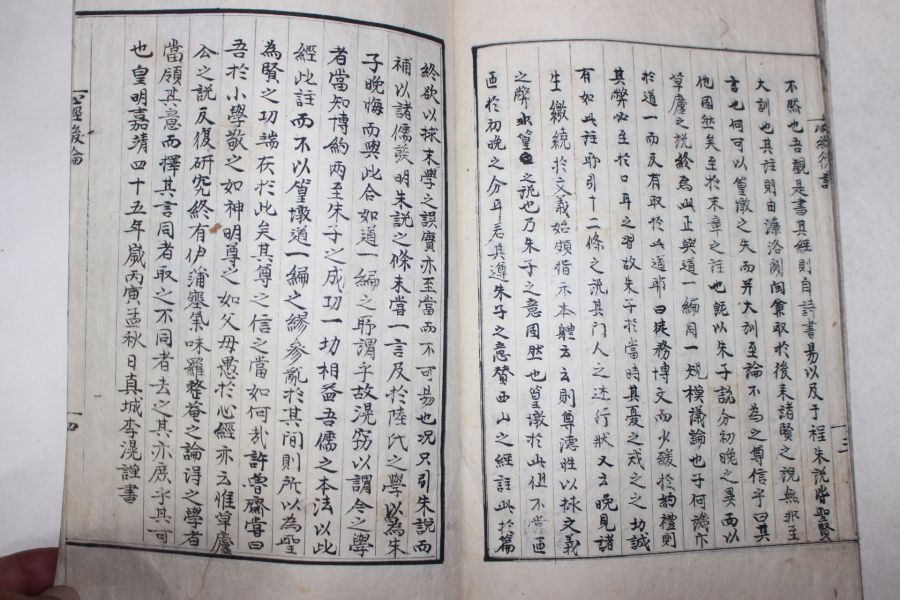 不然也吾觀是書其經則自詩書易以及于程朱說皆聖賢
大訓也其註則由濂洛關閩兼取於後来諸賢之說無非至
言也何可以篁墩之失而并大訓至論不為之尊信乎曰其
他固然矣至於末章之註也旣以朱子說分初晚之異而以
草廬之說終焉此正與道一編同一規模議論也子何譏
於道一而反有取於此道耶曰徒務博文而少緩於約禮則
其弊必至於口耳之習故朱子於當時其憂之戒之之切誠
有如此註所引十二條之說其門人之述行狀又云晚見諸
生繳繞於文義始頗指示本體云云則尊德性以捄文義
之弊非篁墩之說也乃朱子之意固然也篁墩於此但不當區
區於初晚之分耳若其遵朱子之意贊西山之經註此於篇
終欲以捄末學之誤實亦至當而不可易也况只引朱說而
補以諸儒發明朱說之條未嘗一言及於陸氏之學以為朱
子晚悔而與此合如道一編之所謂乎故滉窃以謂今之學
者當知博約兩至朱子之成功一功相益吾儒之本法以此
經此註而不以篁墩道一編之繆參亂於其間則所以為聖
為賢之功端在於此矣其尊之信之當如何哉許魯齋嘗曰
吾於小學敬之如神明尊之如父母愚於心經亦云惟草廬
公之說反復研究終有伊蒲塞氣味羅整菴之論得之學者
當領其意而擇其言同者取之不同者去之其亦庶乎其可
也皇明嘉靖四十五年歲丙寅孟秋日真城李滉謹書
心經後論